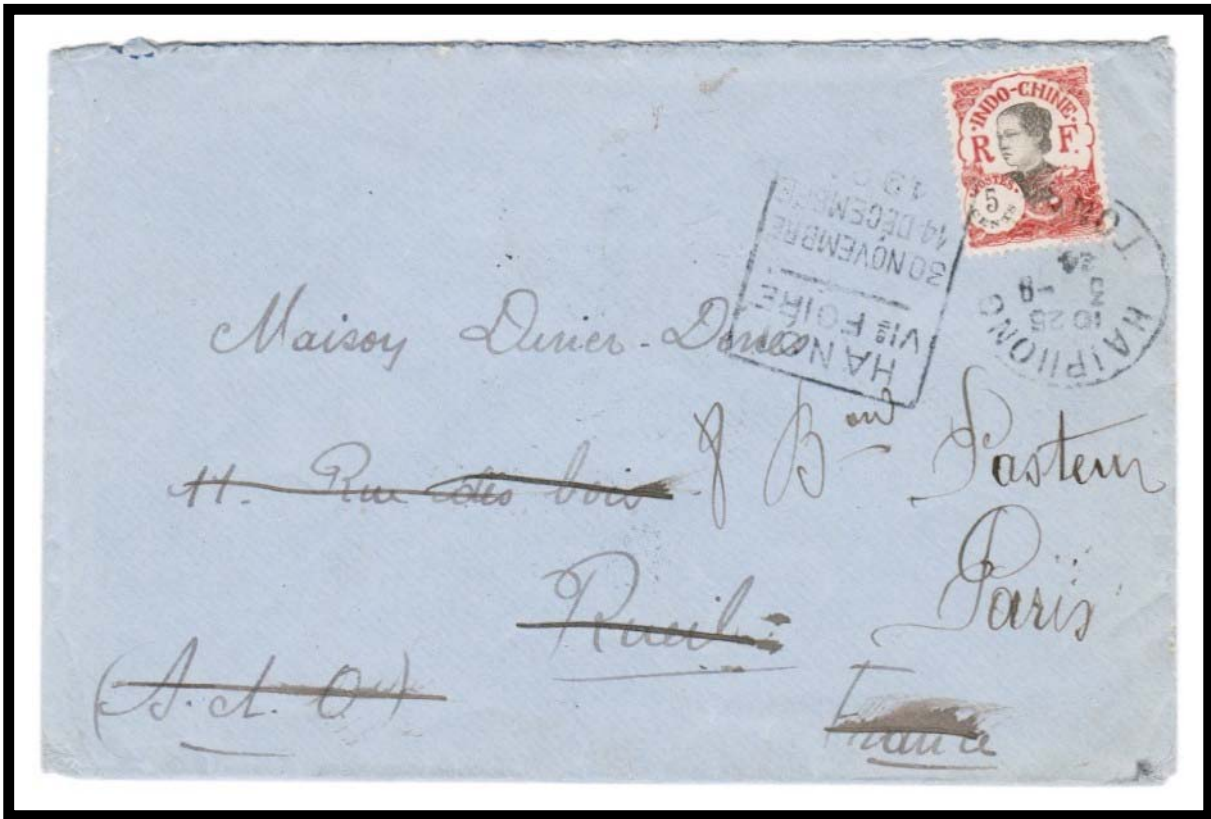 INDO-CHINE
R F.
POSTES
5
CENTS
HANOI
VIe FOIRE
30 NOVEMBRE
14 DÉCEMBRE
HAIPHONG
10 25
3 -8
Maison
11. Rue des bois 8 Bard Pasteur
Rueil Paris
(S. et. O)
France